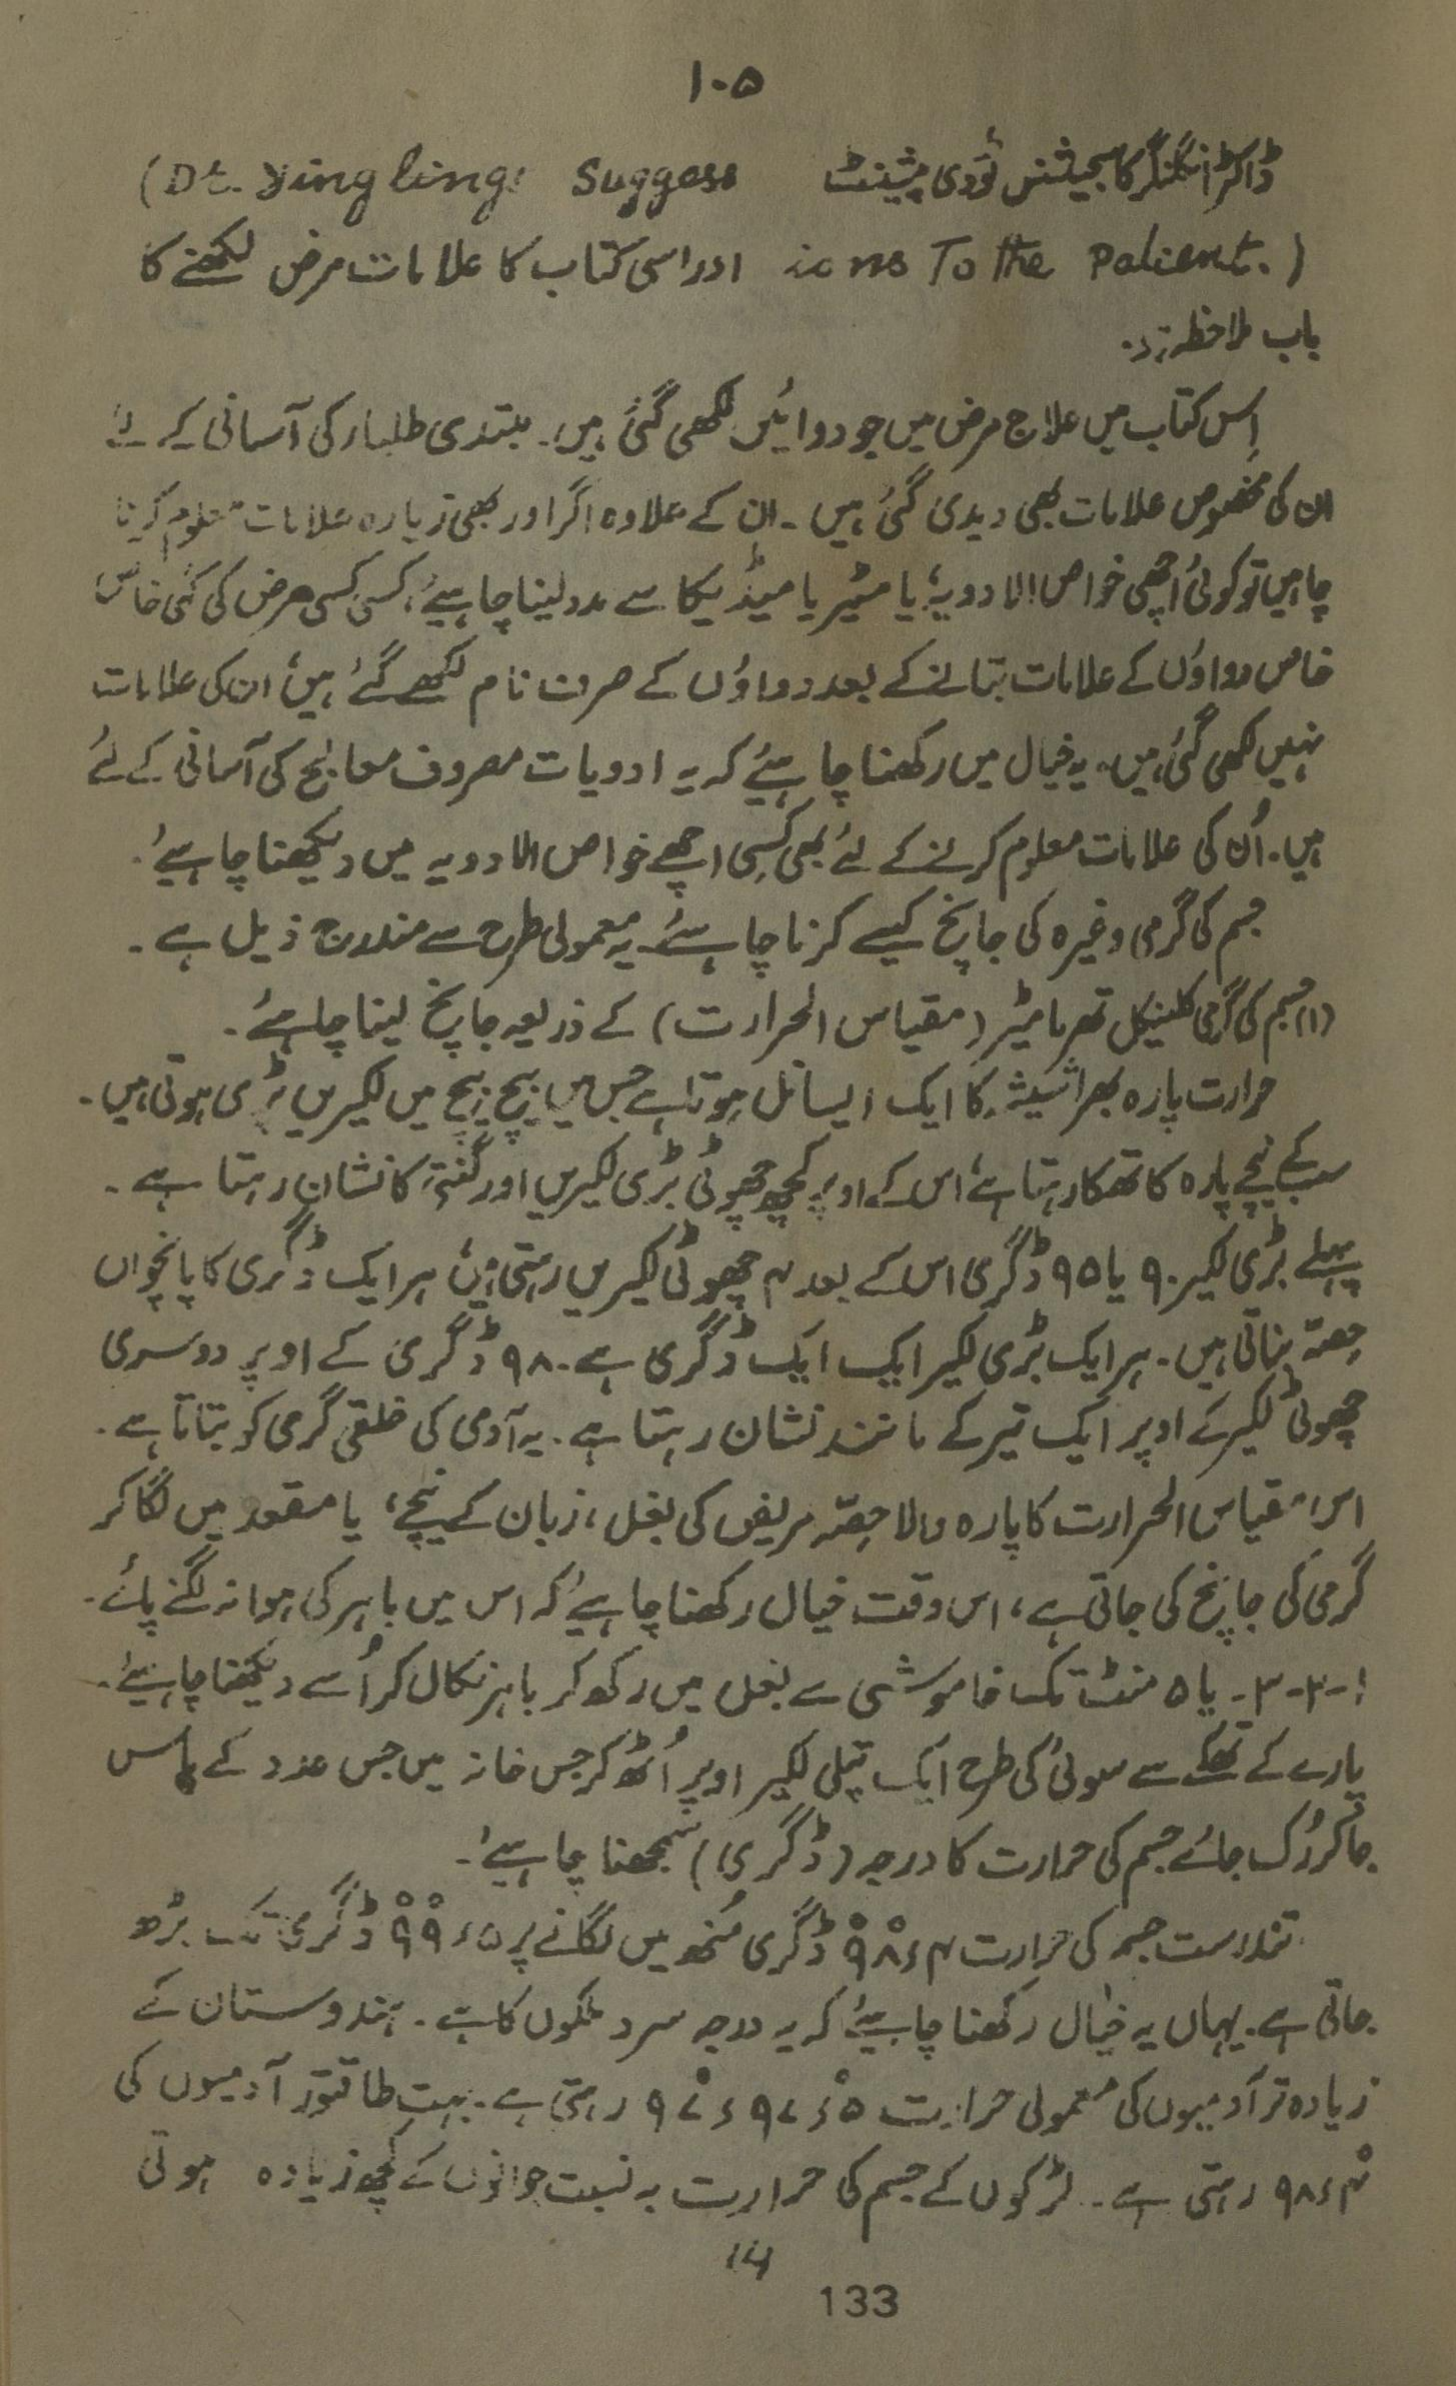 ۱۰۵
ڈاکٹر انگلنگز کا سجیشنس ٹو دی پیشینٹ (Dt. Yinglings Suggess
ions To the Patient.) اور اسی کتاب کا علامات مرض لکھنے کا
باب ملاحظہ ہو.
اِس کتاب میں علاج مرض میں جو دوائیں لکھی گئی ہیں۔ مبتدی طلبار کی آسانی کے لئے
ان کی مخصوص علامات بھی دیدی گئی ہیں ۔ ان کے علاوہ اگر اور بھی زیادہ علامات معلوم کرنا
چاہیں تو کوئی اچھی خواص الادویہ یا مٹیریا میڈیکا سے مدد لینا چاہیئے، کسی کسی مرض کی کئی خاص
خاص دواؤں کے علامات بتانے کے بعد دواؤں کے صرف نام لکھے گئے ہیں، ان کی علامات
نہیں لکھی گئی ہیں۔ یہ خیال میں رکھنا چاہیئے کہ یہ ادویات مصروف معالج کی آسانی کے لئے
ہیں۔ اُن کی علامات معلوم کرنے کے لئے بھی کسی اچھے خواص الادویہ میں دیکھنا چاہیئے۔
جسم کی گرمی وغیرہ کی جانچ کیسے کرنا چاہئے۔ یہ معمولی طرح سے مندرج ذیل ہے ۔
(۱) جسم کی گرمی کلینیکل تھرمامیٹر (مقیاس الحرارت) کے ذریعہ جانچ لینا چاہئے ۔
حرارت پارہ بھرا شیشہ کا ایک ایسا نل ہوتا ہے جس میں بیچ بیچ میں لکیریں پڑی ہوتی ہیں ۔
سب کے نیچے پارہ کا تھکا رہتا ہے، اس کے اوپر کچھ چھوٹی بڑی لکیریں اور گنتی کا نشان رہتا ہے ۔
پہلے بڑی لکیر ۹۰ یا ۹۵ ڈگری اس کے بعد ۴ چھوٹی لکیریں رہتی ہیں، ہر ایک ڈگری کا پانچواں
حصّہ بناتی ہیں ۔ ہر ایک بڑی لکیر ایک ایک ڈگری ہے ۔ ۹۸ ڈگری کے اوپر دوسری
چھوٹی لکیر کے اوپر ایک تیر کے مانند نشان رہتا ہے ۔ یہ آدمی کی خلقی گرمی کو بتاتا ہے ۔
اس مقیاس الحرارت کا پارہ والا حصّہ مریض کی بغل، زبان کے نیچے، یا مقعد میں لگا کر
گرمی کی جانچ کی جاتی ہے، اس وقت خیال رکھنا چاہیئے کہ اس میں باہر کی ہوا نہ لگنے پائے۔
۱-۲-۳- یا ۵ منٹ تک خاموشی سے بغل میں رکھ کر باہر نکال کر اُسے دیکھنا چاہیئے ۔
پارے کے تھکے سے سوئی کی طرح ایک پتلی لکیر اوپر اُٹھ کر جس خانہ میں جس عدد کے پاس
جا کر رُک جائے جسم کی حرارت کا درجہ (ڈگری) سمجھنا چاہیئے۔
تندرست جسم کی حرارت ۹۸ْ٫۴ ڈگری مُنھ میں لگانے پر ۹۹ْ٫۵ ڈگری تک بڑھ
جاتی ہے۔ یہاں یہ خیال رکھنا چاہیئے کہ یہ درجہ سرد ملکوں کا ہے ۔ ہندوستان کے
زیادہ تر آدمیوں کی معمولی حرارت ۹۷٫۵ْ ٫ ۹۷ْ رہتی ہے ۔ بہت طاقتور آدمیوں کی
۹۸٫۴ْ رہتی ہے ۔ لڑکوں کے جسم کی حرارت بہ نسبت جوانوں کے کچھ زیادہ ہوتی
133